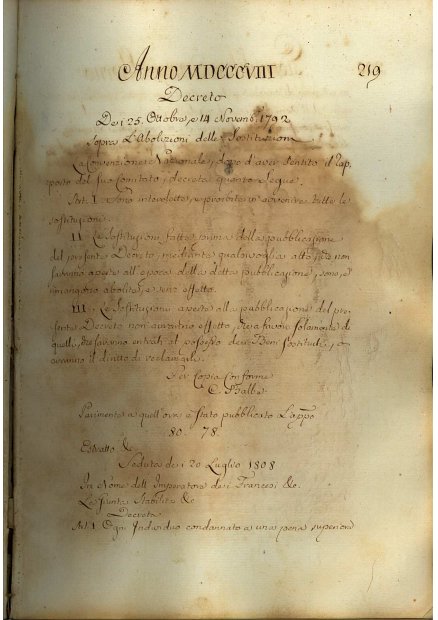 Anno MDCCCVIII 219
Decreto
Dei 25. Ottobre, e 14 Novemb. 1792
Sopra L'Abolizioni delle Sostituzioni
La Convenzione Nazionale, dopo d'aver sentito il rap-
porto del suo Comitato, decreta quanto segue.
Art. I. Sono interdette, e proibite in avvenire tutte le
sostituzioni.
II. Le Sostituzioni fatte prima della pubblicazione
del presente Decreto, mediante qualsivoglia atto, che non
saranno aperte all'epoca della detta pubblicazione, sono, e
rimangono abolite, e senz'effetto.
III. Le Sostituzioni aperte alla pubblicazione del pre-
sente Decreto non avranno effetto, che a favore solamente di
quelli, che saranno entrati al possesso dei Beni sostituiti, o
avranno il diritto di reclamgli.
Per Copia Conforme
C. Balbo
Parimente a quell'ora è stato pubblicato L'appo
80. 78.
Estratto &c
Seduta dei 20 Luglio 1808
In Nome dell'Imperatore dei Francesi &c.
La Giunta Stabilita &c
Decreta
Art. I. Ogni Individuo condannato a una pena superiore